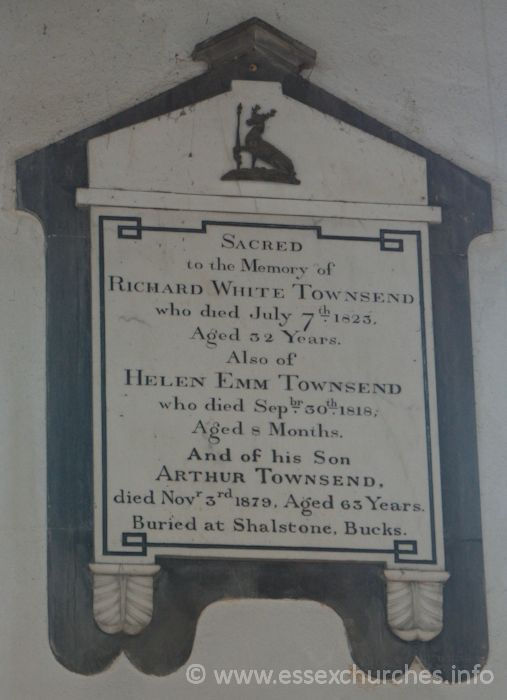 SACRED
to the Memory of
RICHARD WHITE TOWNSEND
who died July 7th 1823,
Aged 32 Years.
Also of
HELEN EMM TOWNSEND
who died Sepbr 30th 1818,
Aged 8 Months.
And of his Son
ARTHUR TOWNSEND,
died Novr 3rd 1879, Aged 63 Years.
Buried at Shalstone, Bucks.
© www.essexchurches.info